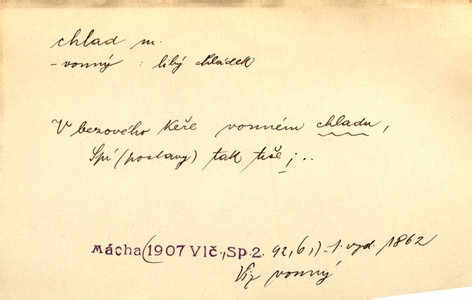 chlad m.
- vonný : libý chládek
V bezového keře vonném chladu,
Spí (postavy) tak tiše ; ..
Mácha (1907 Vlč., Sp. 2. 92, b, ) - 1. vyd. 1862
Viz vonný